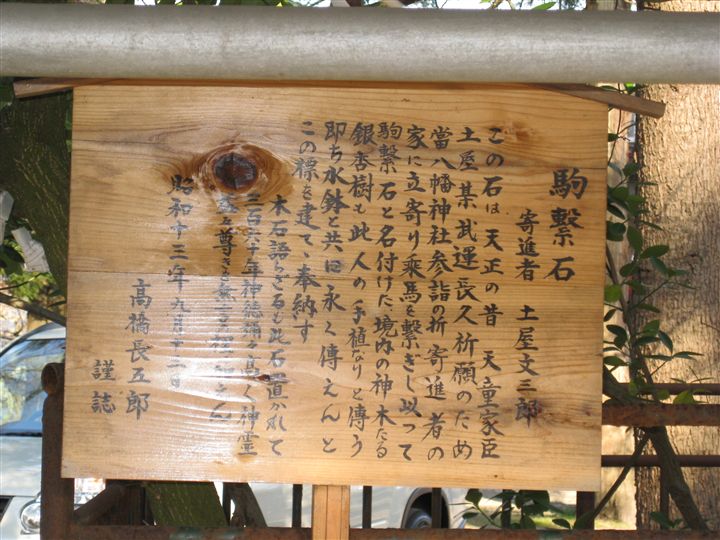 駒繋石
寄進者 土屋文三郎
この石は天正の昔 天童家臣
土屋某武運長久祈願のため
當八幡神社参詣の折寄進者の
家に立寄り乗馬を繋ぎし以って
駒繋石と名付けた境内の神木たる
銀杏樹も此人の手植なりと傳う
即ち水鉢と共に永く傳えんと
この標を建てゝ奉納す
木石語らざるも此石置かれて
三百六十年神徳彌々高く神霊
益々尊き
昭和十三年九月十三日
高橋長五郎
謹誌